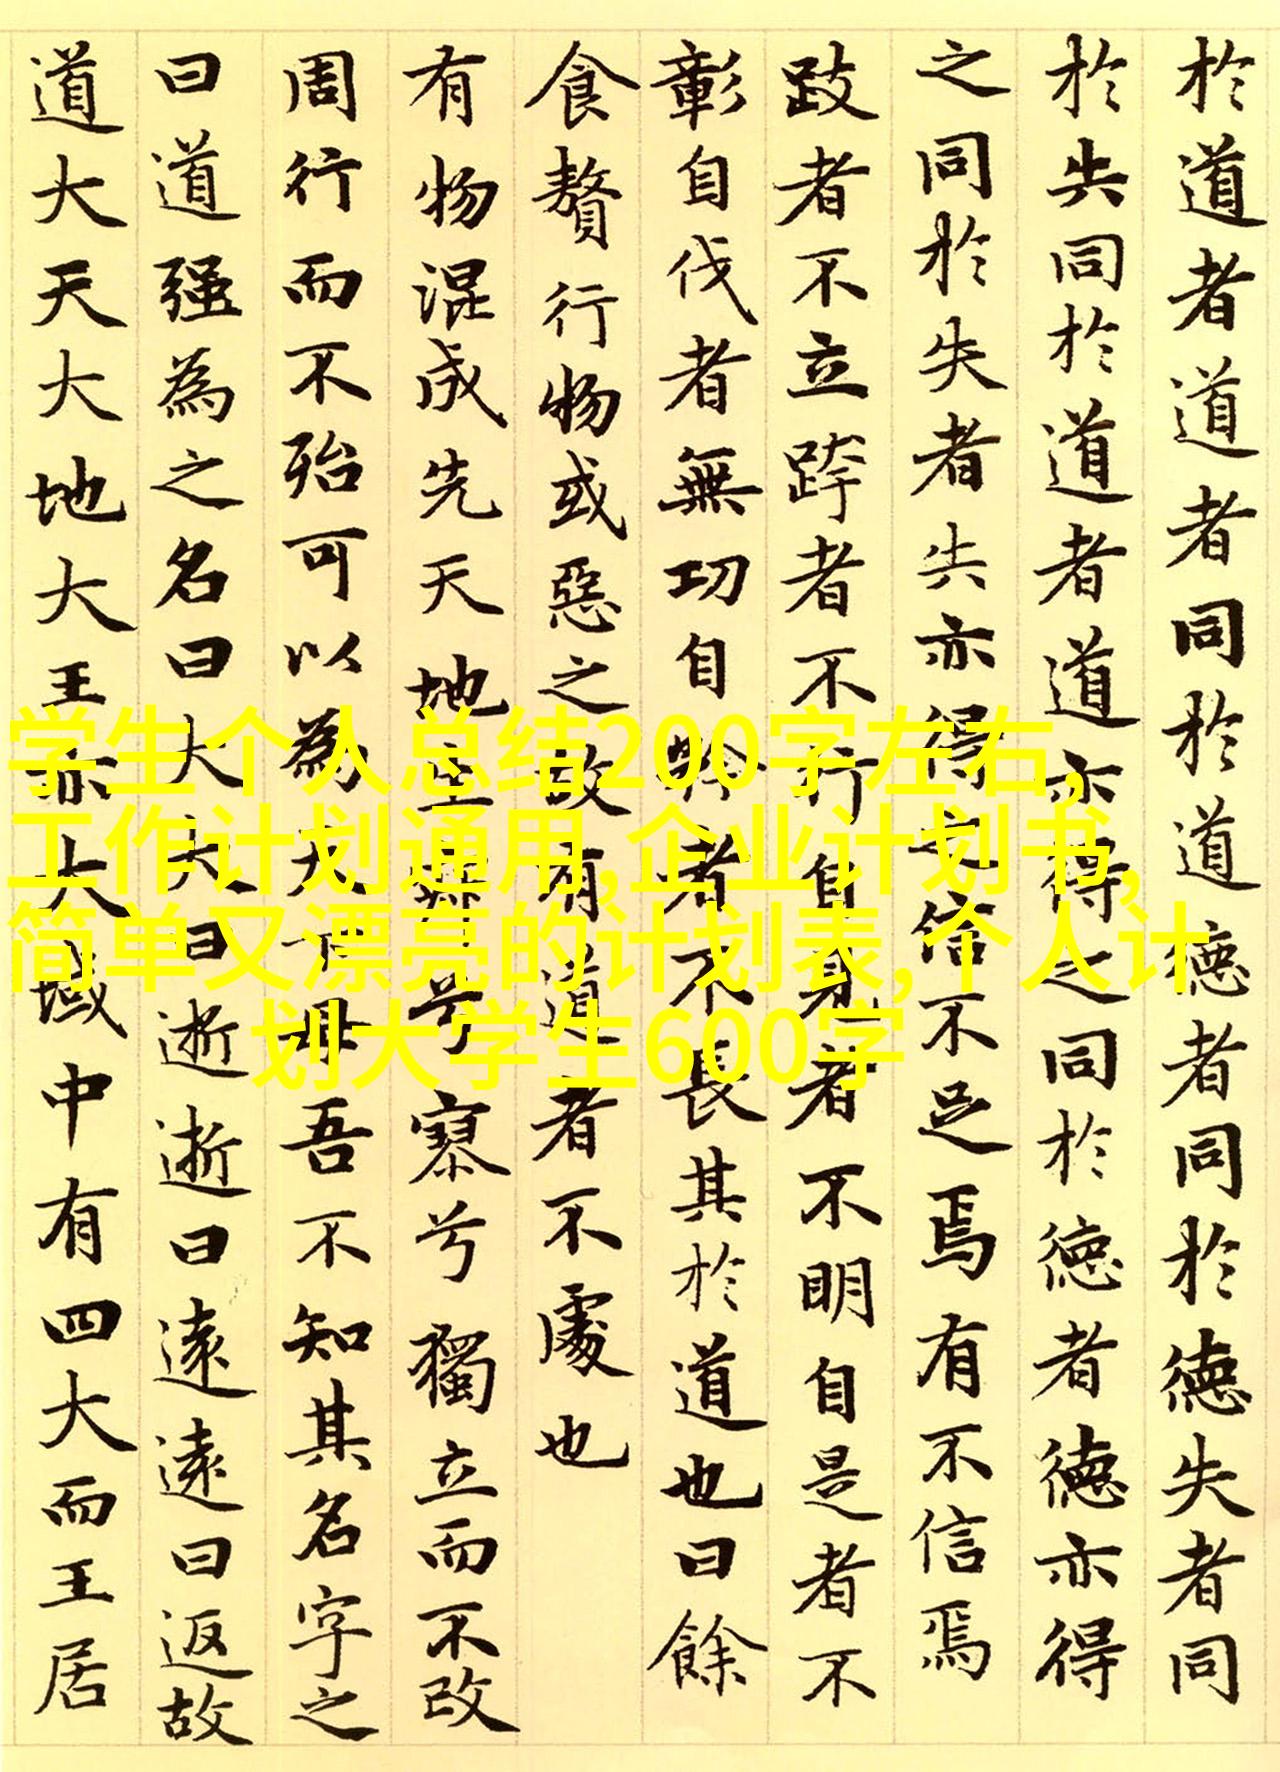 於道者道者同於道德者同於德失者同
於失同於道者道亦得之同於德者德亦得
之同於失者失亦得之信不足焉有不信焉
跂者不立跨者不行自見者不明自是者不
彰自伐者無功自矜者不長其於道也曰餘
食贅行物或惡之故有道者不處也
有物混成先天地生寂兮寥兮獨立而不改
周行而不殆可以為天下母吾不知其名字之
曰道强為之名曰大大曰逝逝曰遠遠曰返故
道大天大地大王亦大域中有四大而王居
学生个人总结200字左右,
工作计划通用,企业计划书,
简单又漂亮的计划表,个人计
划大学生600字